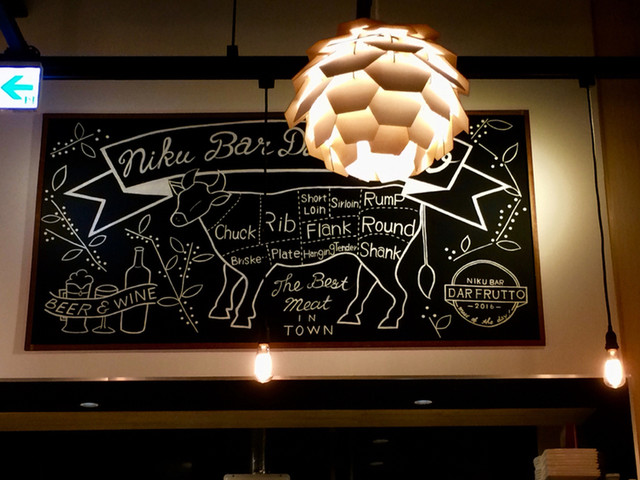 Niku Bar
Short Loin
Sirloin
Rump
Chuck
Rib
Flank
Round
Brisket
Plate
Hanging
Tender
Shank
The Best
Meat
IN
TOWN
BEER & WINE
NIKU BAR
DARFRUTTO
-2016-